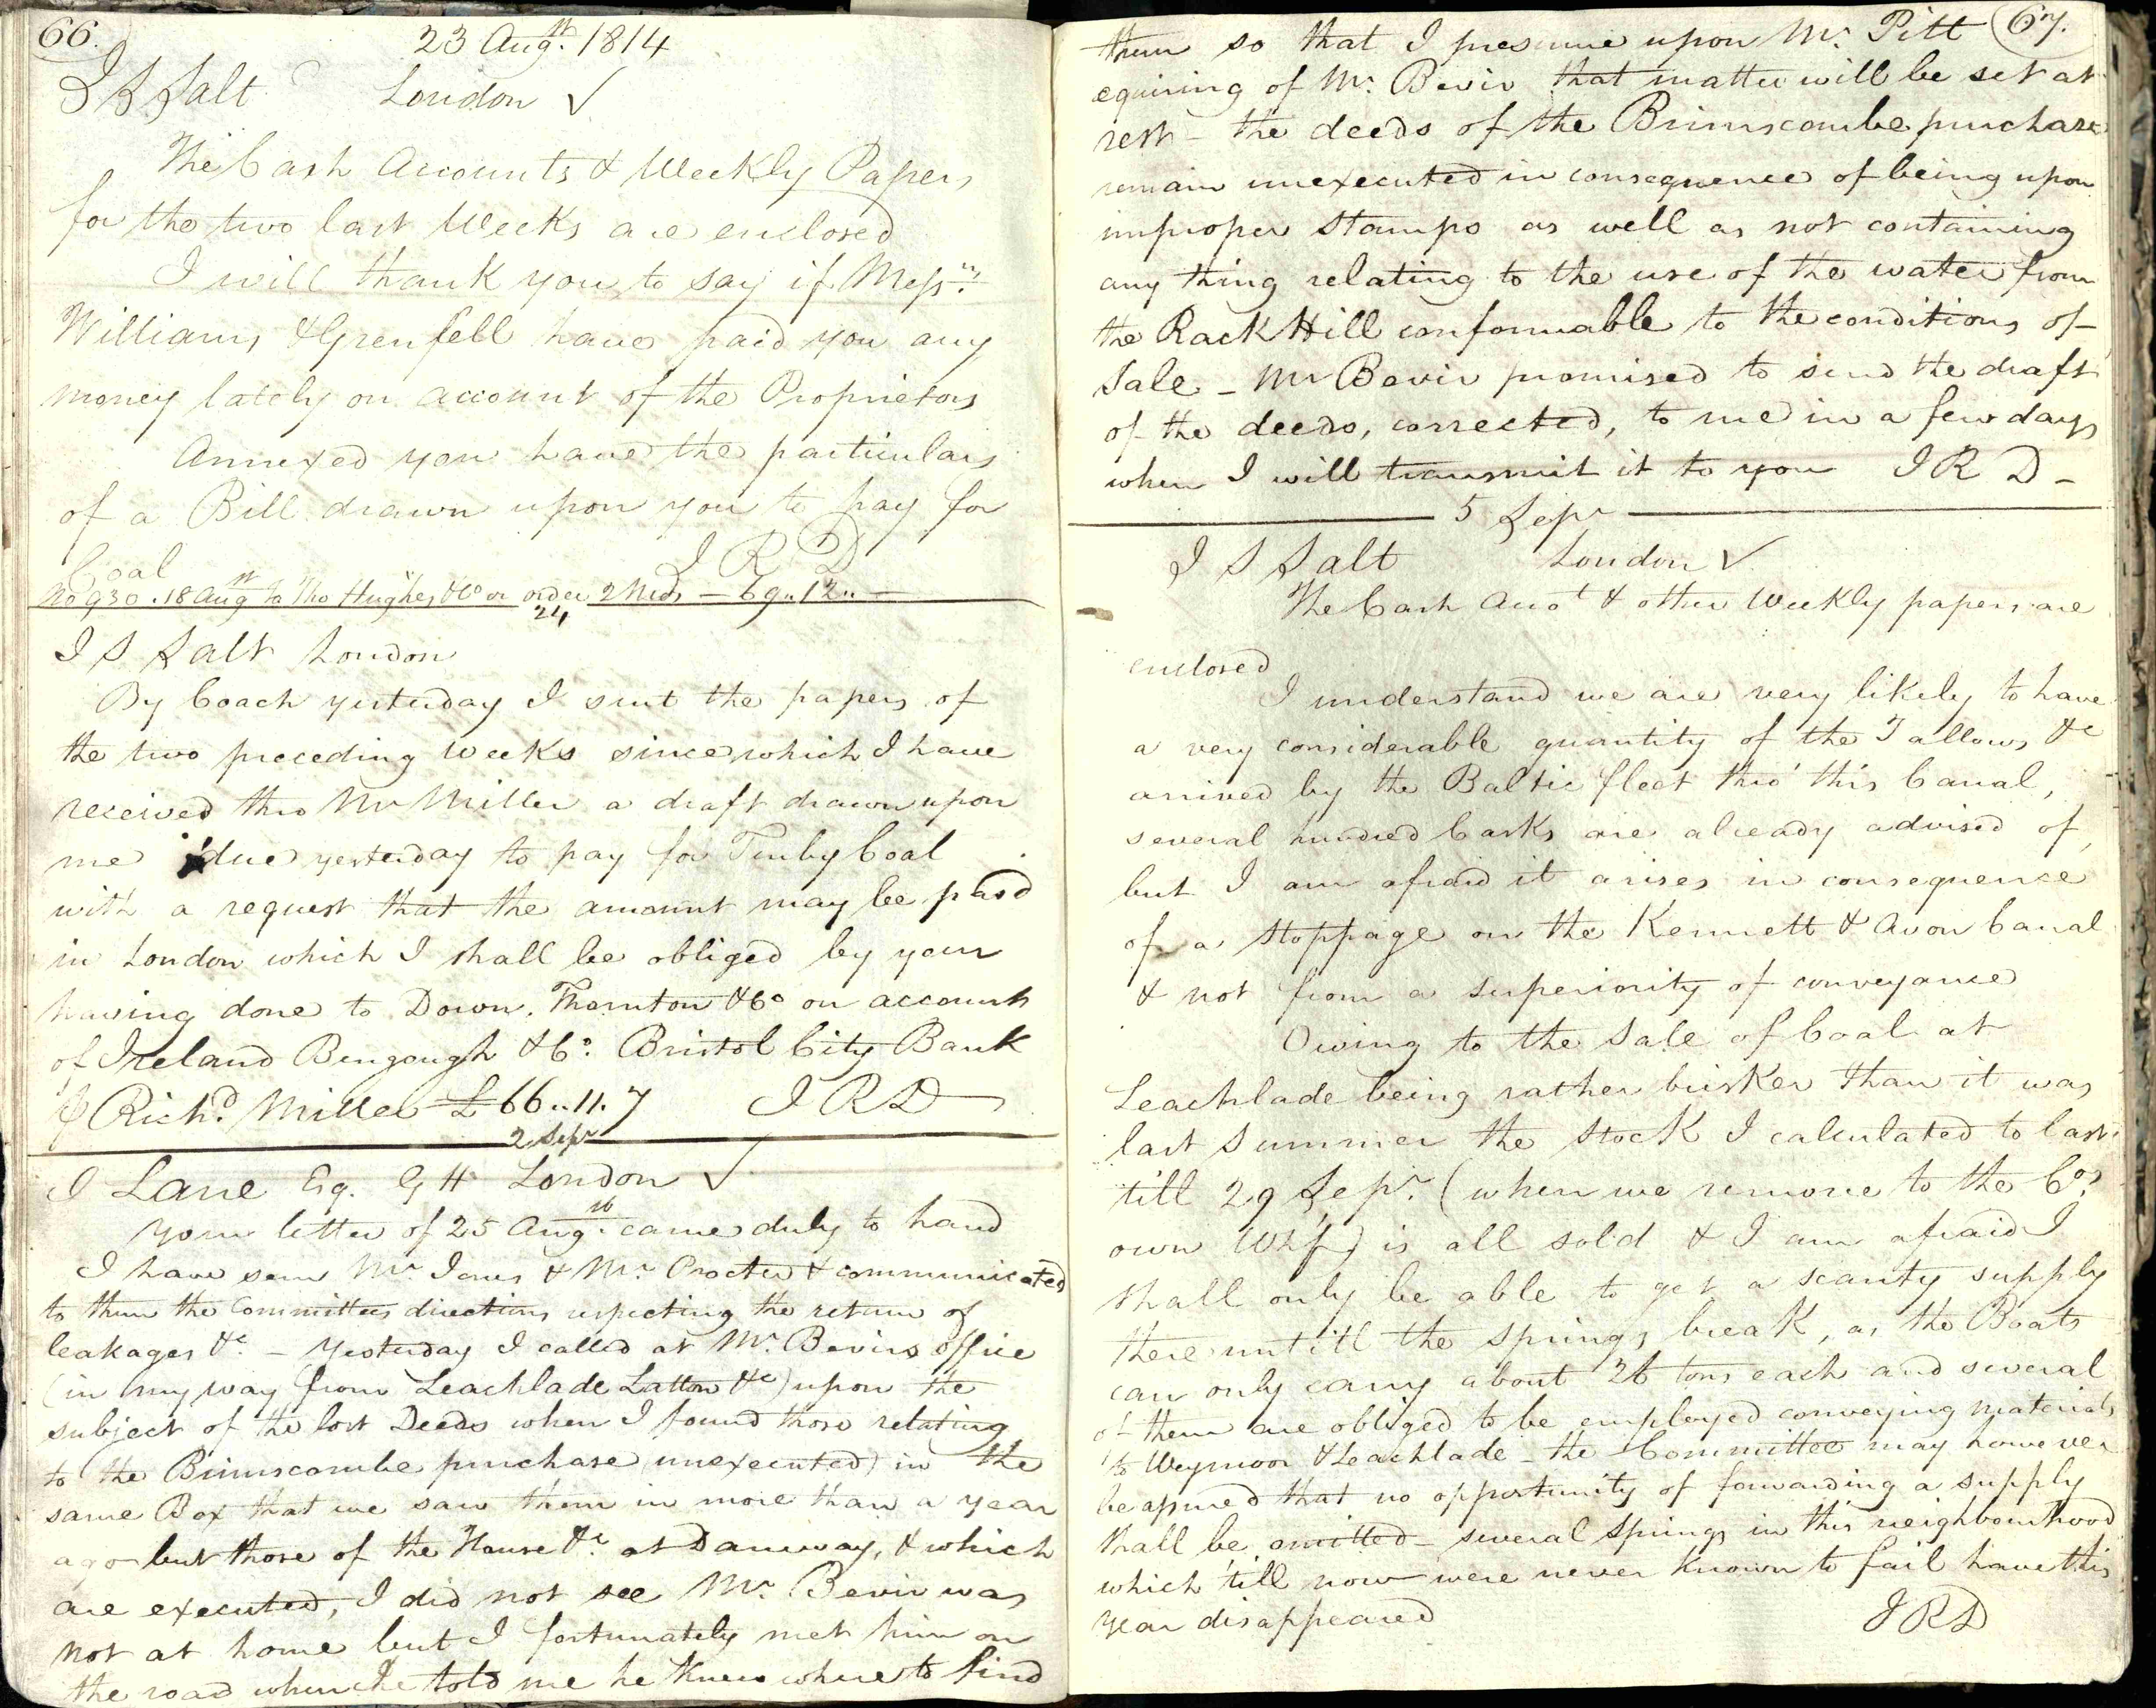 66.
23 Augst. 1814
I S Salt London ✓
The Cash Accounts & Weekly Papers
for the two last Weeks are enclosed
I will thank you to say if Messrs.
Williams & Grenfell have paid you any
money lately on account of the Proprietors
Annexed you have the particulars
of a Bill drawn upon you to pay for
Coal I R D
No 930. 18 Augst to Tho Hughes & Co or order 2 Mds — 69..12..—
24
I S Salt London
By Coach yesterday I sent the papers of
the two preceding Weeks since which I have
received thro Mr Miller a draft drawn upon
me due yesterday to pay for Tenby Coal
with a request that the amount may be paid
in London which I shall be obliged by your
having done to Down, Thornton & Co on account
of Ireland Bengough & Co. Bristol City Bank
p Richd. Miller £66..11.7 I R D
2 Sepr
I Lane Esq. G H London ✓
Your letter of 25 Augst. came duly to hand
I have seen Mr. Jones & Mr. Procter & communicated
to them the Committees directions respecting the return of
leakages &c. – Yesterday I called at Mr. Bevirs office
(in my way from Leachlade Latton &c) upon the
subject of the lost Deeds when I found those relating
to the Brimscombe purchase (unexecuted) in the
same Box that we saw them in more than a year
ago but those of the House &c. at Daneway, & which
are executed, I did not see Mr. Bevir was
not at home but I fortunately met him on
the road when he told me he knew where to find
67.
them so that I presume upon Mr. Pitt
equiring of Mr. Bevir that matter will be set at
rest – the deeds of the Brimscombe purchase
remain unexecuted in consequence of being upon
improper Stamps as well as not containing
any thing relating to the use of the water from
the Rack Hill conformable to the conditions of
Sale – Mr Bevir promised to send the draft
of the deeds, corrected, to me in a few days
when I will transmit it to you I R D –
5 Sepr
I S Salt London ✓
The Cash Acot & other Weekly papers are
enclosed
I understand we are very likely to have
a very considerable quantity of the Tallows &c
arrived by the Baltic fleet thro' this Canal,
several hundred Casks are already advised of,
but I am afraid it arises in consequence
of a stoppage on the Kennett & Avon Canal
& not from a superiority of conveyance
Owing to the Sale of Coal at
Leachlade being rather brisker than it was
last Summer the stock I calculated to last
till 29 Sepr. (when we remove to the Cos.
own Whf) is all sold & I am afraid I
shall only be able to get a scanty supply
there untill the springs break, as the Boats
can only carry about 26 tons each and several
of them are obliged to be employed conveying materials
to Weymoor & Leachlade – the Committee may however
be assured that no opportunity of forwarding a supply
shall be omitted – several Springs in this neighbourhood
which till now were never known to fail have this
year disappeared I R D